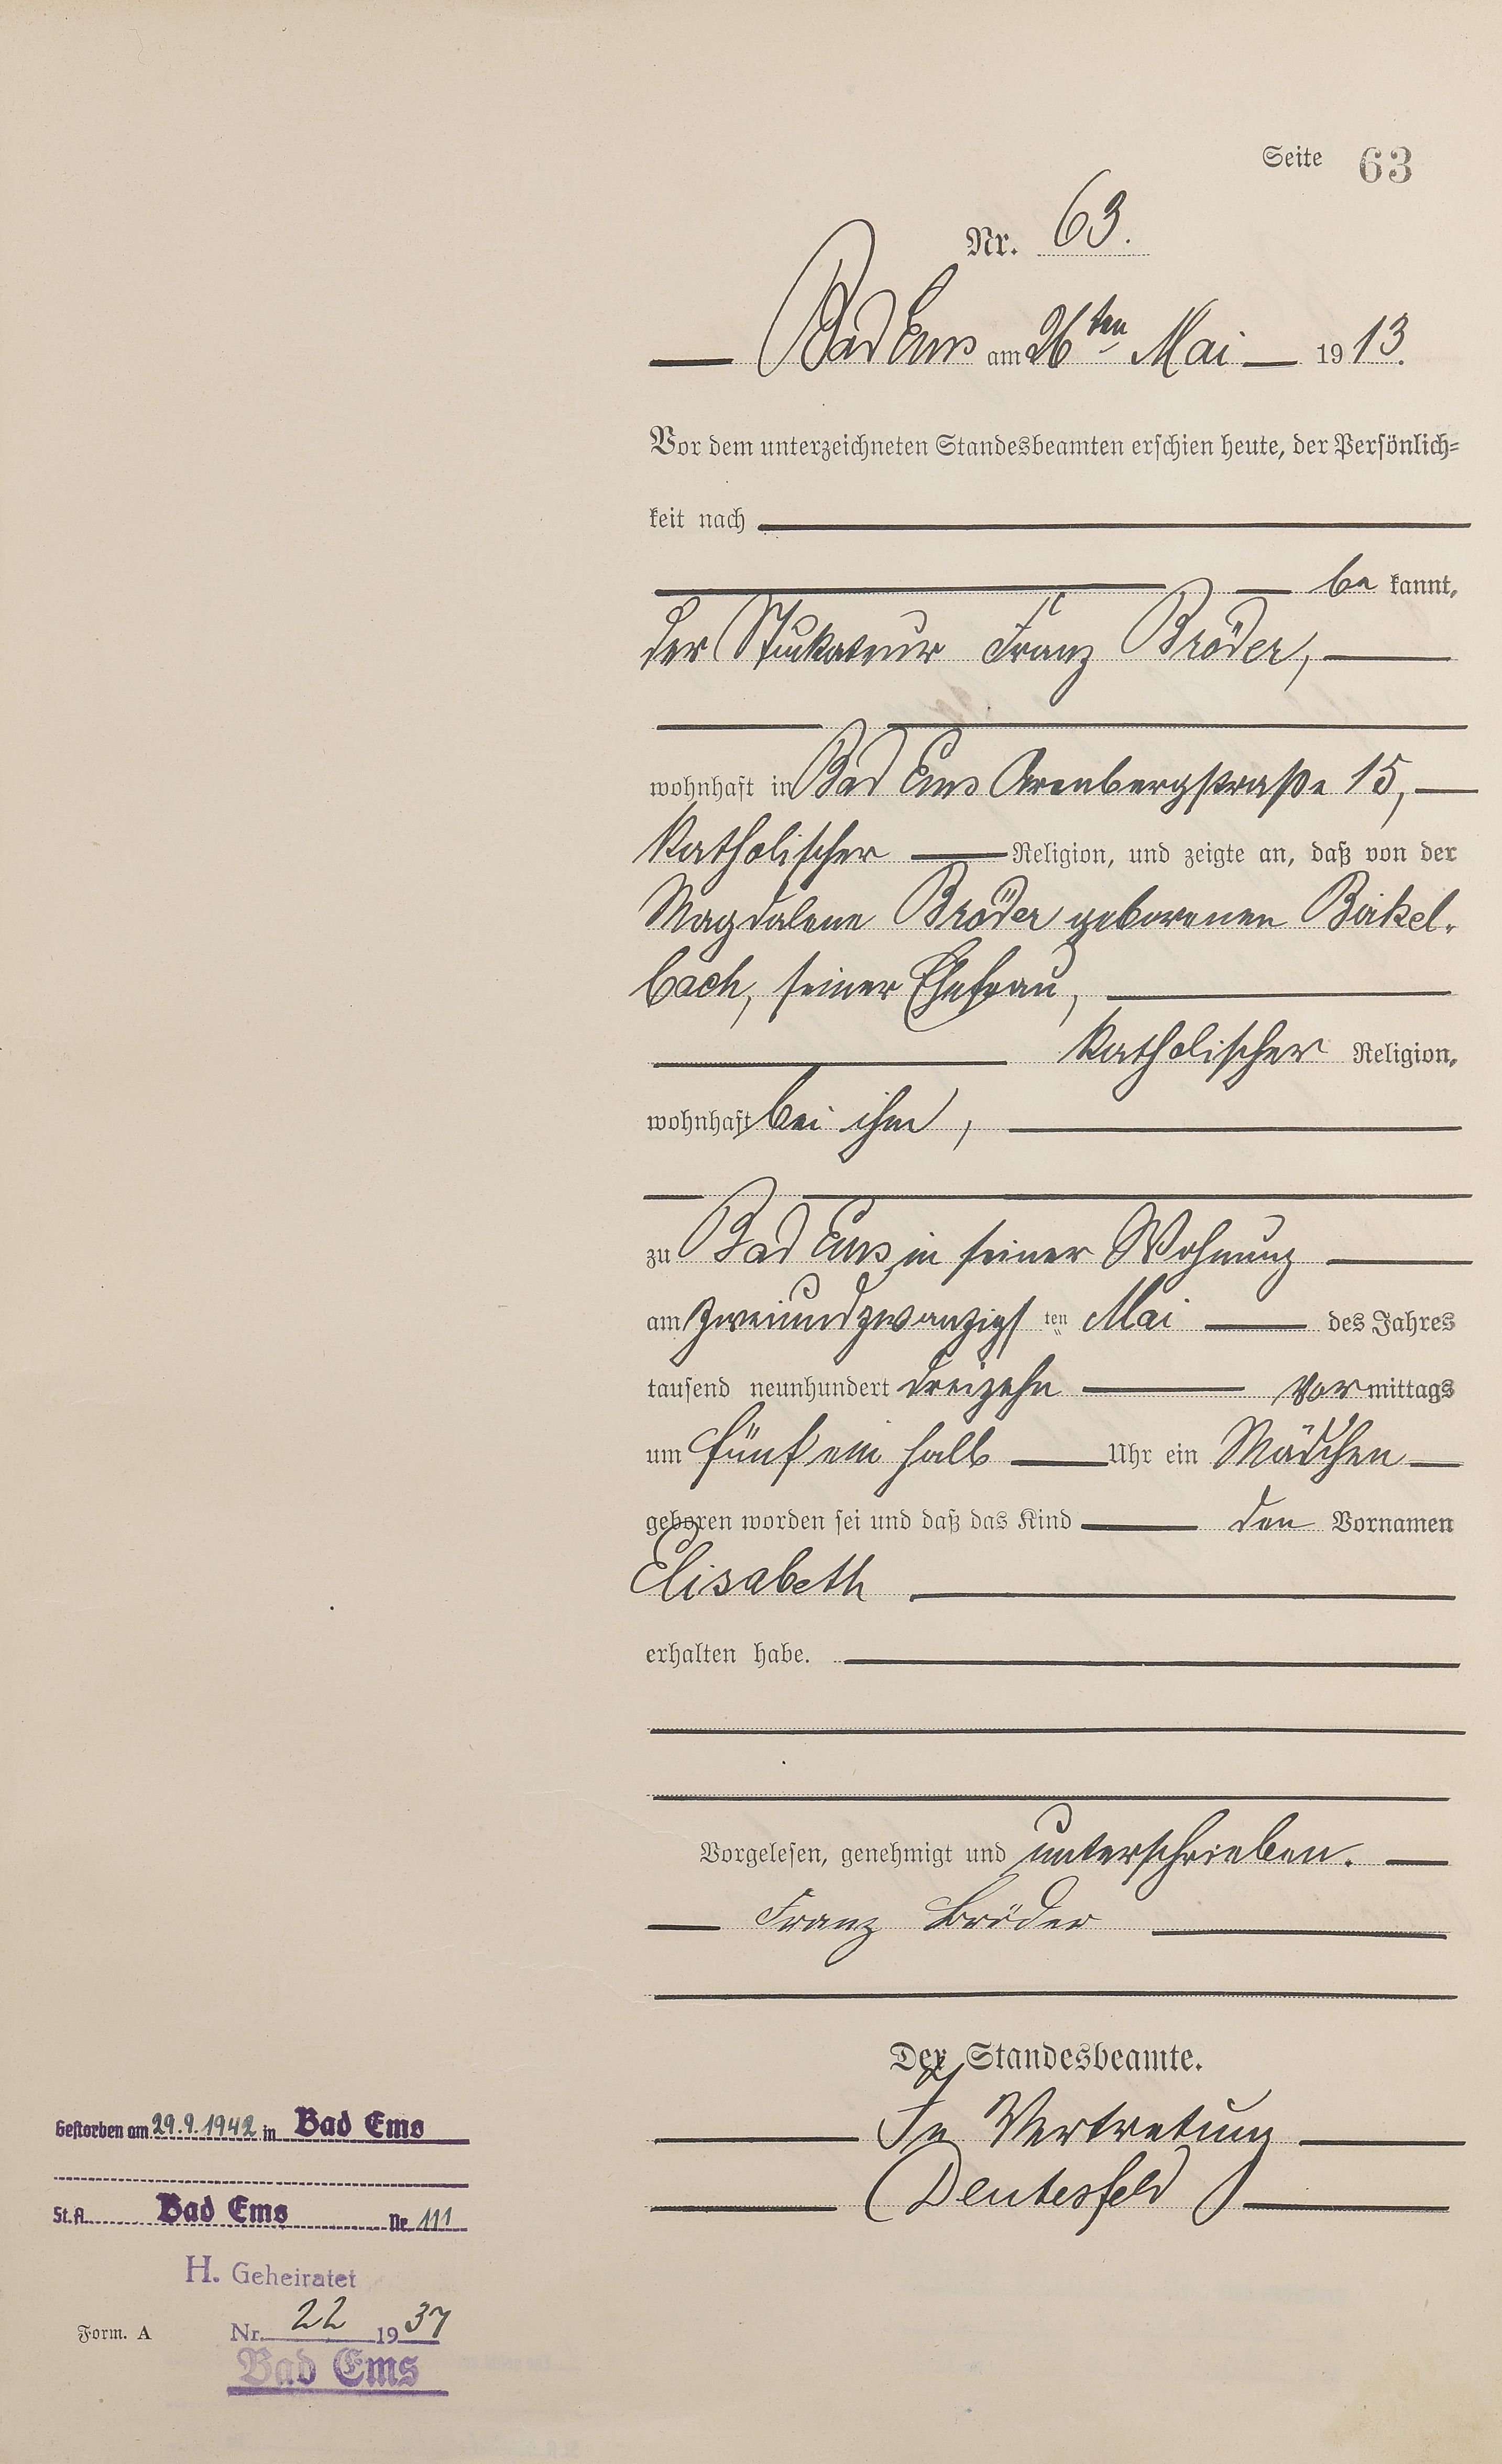 Seite 63
Nr. 63.
Bad Ems am 26ten Mai 1913.
Vor dem unterzeichneten Standesbeamten erschien heute, der Persönlich=
keit nach
be kannt,
der Stukateur Franz Bröder,
wohnhaft in Bad Ems Arenbergstraße 15,
katholischer Religion, und zeigte an, daß von der
Magdalene Bröder geborenen Birkel-
bach, seiner Ehefrau,
katholischer Religion,
wohnhaft bei ihm,
zu Bad Ems in seiner Wohnung
am zweiundzwanzigs ten Mai des Jahres
tausend neunhundert dreizehn Vormittags
um fünf ein halb Uhr ein Mädchen
geboren worden sei und daß das Kind den Vornamen
Elisabeth
erhalten habe.
Vorgelesen, genehmigt und unterschrieben.
Franz Bröder
Der Standesbeamte.
In Vertretung
(Deutesfeld)
Gestorben am 29.9.1942 in Bad Ems
St.A. Bad Ems Nr 111
H. Geheiratet
Form. A Nr. 22 1937
Bad Ems